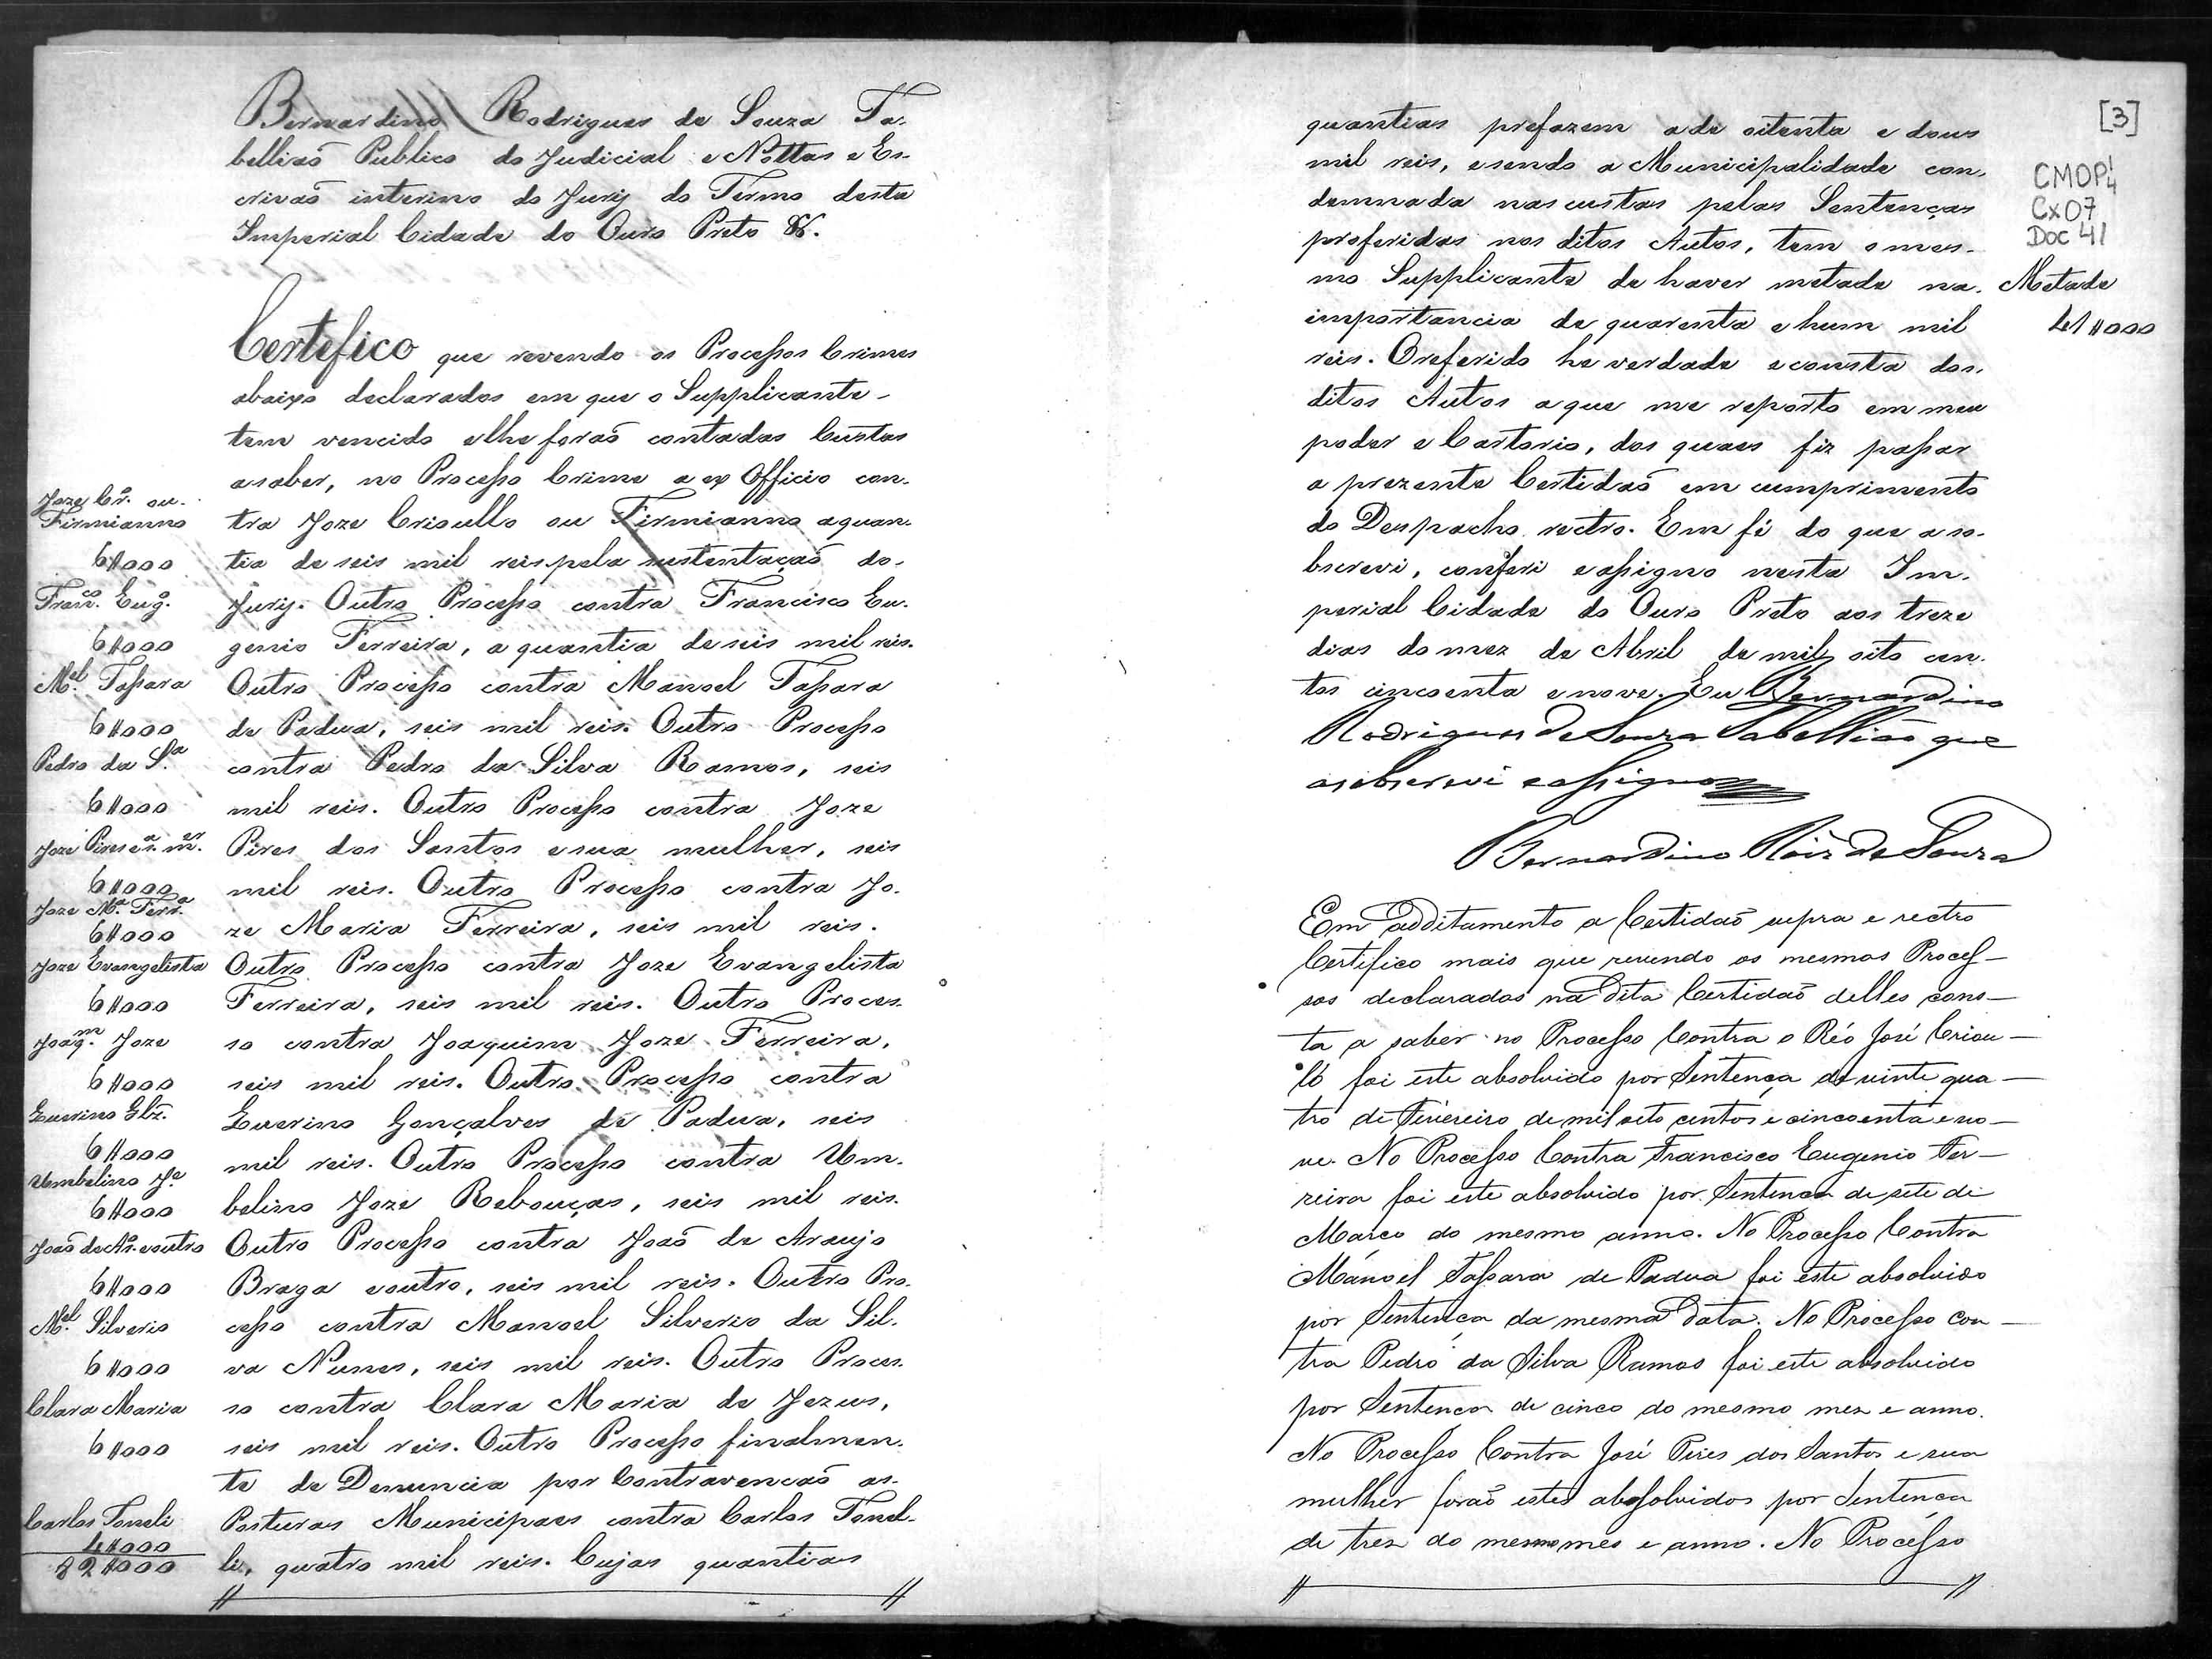 Bernardino Rodrigues de Souza Ta-
belliaõ Publico do Judicial e Nottas e Es-
crivaõ interino do Jury do Termo desta
Imperial Cidade do Ouro Preto &.
Certefico que revendo os Processos Crimes
abaixo declarados em que o Supplicante
tem vencido e lhe foraõ contadas Custas
a saber, no Processo Crime a ex Officio con-
Joze Crº. ou
Firmianno
tra Joze Crioullo ou Firmianno a quan-
6#000
tia de seis mil reis pela sustentaçaõ do
Franco. Eugº.
Jury. Outro Processo contra Francisco Eu-
6#000
genio Ferreira, a quantia de seis mil reis.
Mel. Tassara
Outro Processo contra Manoel Tassara
6#000
de Padua, seis mil reis. Outro Processo
Pedro da Sa.
contra Pedro da Silva Ramos, seis
6#000
mil reis. Outro Processo contra Joze
Joze Pires e sa. mer.
Pires dos Santos e sua mulher, seis
6#000
mil reis. Outro Processo contra Jo-
Joze Ma. Ferra.
6#000
ze Maria Ferreira, seis mil reis.
Joze Evangelista
Outro Processo contra Joze Evangelista
6#000
Ferreira, seis mil reis. Outro Proces-
Joaqm. Joze
so contra Joaquim Joze Ferreira,
6#000
seis mil reis. Outro Processo contra
Euzerino Glz.
Euzerino Gonçalves de Padua, seis
6#000
mil reis. Outro Processo contra Um-
Umbelino Je.
6#000
belino Joze Rebouças, seis mil reis.
Joaõ de Arº. e outro
Outro Processo contra Joaõ de Araujo
6#000
Braga e outro, seis mil reis. Outro Pro-
Mel. Silverio
cesso contra Manoel Silverio da Sil-
6#000
va Nunes, seis mil reis. Outro Proces-
Clara Maria
so contra Clara Maria de Jezus,
6#000
seis mil reis. Outro Processo finalmen-
te de Denuncia por Contravencaõ as
Carlos Toneli
Posturas Municipaes contra Carlos Tonel-
4#000
82#000
li, quatro mil reis. Cujas quantias
[3]
CMOP
Cx07
Doc 41
quantias prefazem a de oitenta e dous
mil reis, e sendo a Municipalidade con-
demnada nas custas pelas Sentenças
proferidas nos ditos Autos, tem o mes-
mo Supplicante de haver metade na
Metade
importancia de quarenta e hum mil
41#000
reis. O referido he verdade e consta dos
ditos Autos a que me reporto em meu
poder e Cartorio, dos quaes fiz passar
a prezente Certidaõ em cumprimento
do Despacho rectro. Em fé do que a so-
bscrevi, conferi e assigno nesta Im-
perial Cidade do Ouro Preto aos treze
dias do mez de Abril de mil oito cen-
tos cincoenta e nove. Eu Bernardino
Rodrigues de Souza Tabelliaõ que
a sobscrevi e assigno
Bernardino Roiz de Souza
Em additamento a Certidaõ supra e rectro
Certifico mais que revendo os mesmos Proces-
sos declarados na dita Certidaõ delles cons-
ta a saber no Processo Contra o Réo José Criou-
lo foi este absolvido por Sentença de vinte qua-
tro de Fevereiro de mil oito centos e cincoenta e no-
ve. No Processo Contra Francisco Eugenio Fer-
reira foi este absolvido por Sentença de sete de
Março do mesmo anno. No Processo Contra
Manoel Tassara de Padua foi este absolvido
por Sentença da mesma data. No Processo Con-
tra Pedro da Silva Ramos foi este absolvido
por Sentença de cinco do mesmo mez e anno.
No Processo Contra José Pires dos Santos e sua
mulher foraõ estes absolvidos por Sentença
de tres do mesmo mes e anno. No Processo